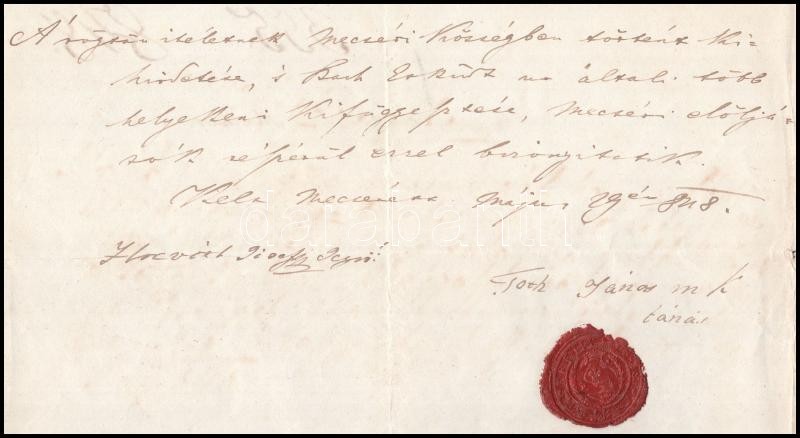 A rögtön itéletnek Mecséri Kösségben történt ki-
hirdetése, 's Bach Esküdt ur általi több
helyekeni Kifüggesztése, Mecséri elöljá-
rsók részéröl ezzel bizonyitatik.
Kelt Mecséren Május 29én 848.
Horváth József Jegyző
Toth János m k
darabanth